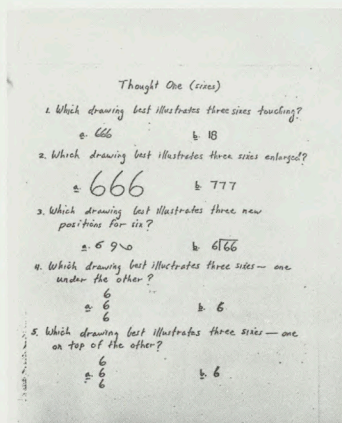 Thought One (sixes)
1. Which drawing best illustrates three sixes touching?
a. 666 b. 18
2. Which drawing best illustrates three sixes enlarged?
a. 666 b. 777
3. Which drawing best illustrates three new
positions for six?
a. 6 9 b. 6 66
4. Which drawing best illustrates three sixes — one
under the other?
6
a. 6 b. 6
6
5. Which drawing best illustrates three sixes — one
on top of the other?
6
a. 6 b. 6
6